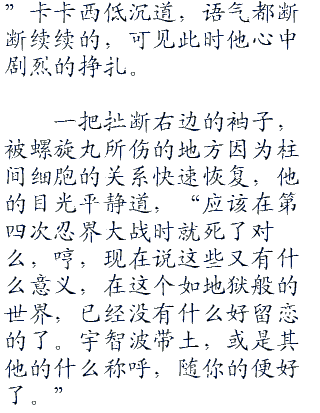 ”卡卡西低沉道，语气都断
断续续的，可见此时他心中
剧烈的挣扎。
一把扯断右边的袖子，
被螺旋丸所伤的地方因为柱
间细胞的关系快速恢复，他
的目光平静道，“应该在第
四次忍界大战时就死了对
么，哼，现在说这些又有什
么意义，在这个如地狱般的
世界，已经没有什么好留恋
的了。宇智波带土，或是其
他的什么称呼，随你的便好
了。”